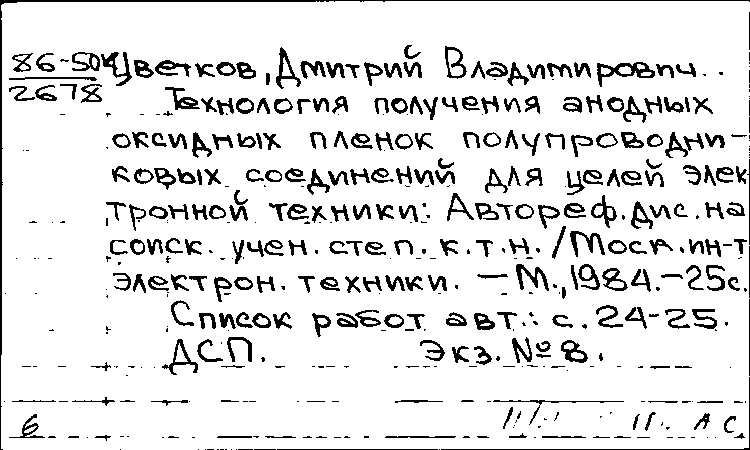 86-504
2678
Цветков, Дмитрий Владимирович.
Технология получения анодных
оксидных пленок полупроводни-
ковых соединений для целей элек
тронной техники: Автореф. дис. на
соиск. учен. степ. к.т.н. / Моск. ин-т
электрон. техники. — М., 1984. — 25с.
Список работ авт.: с. 24-25.
ДСП. Экз. № 8.
6 А С